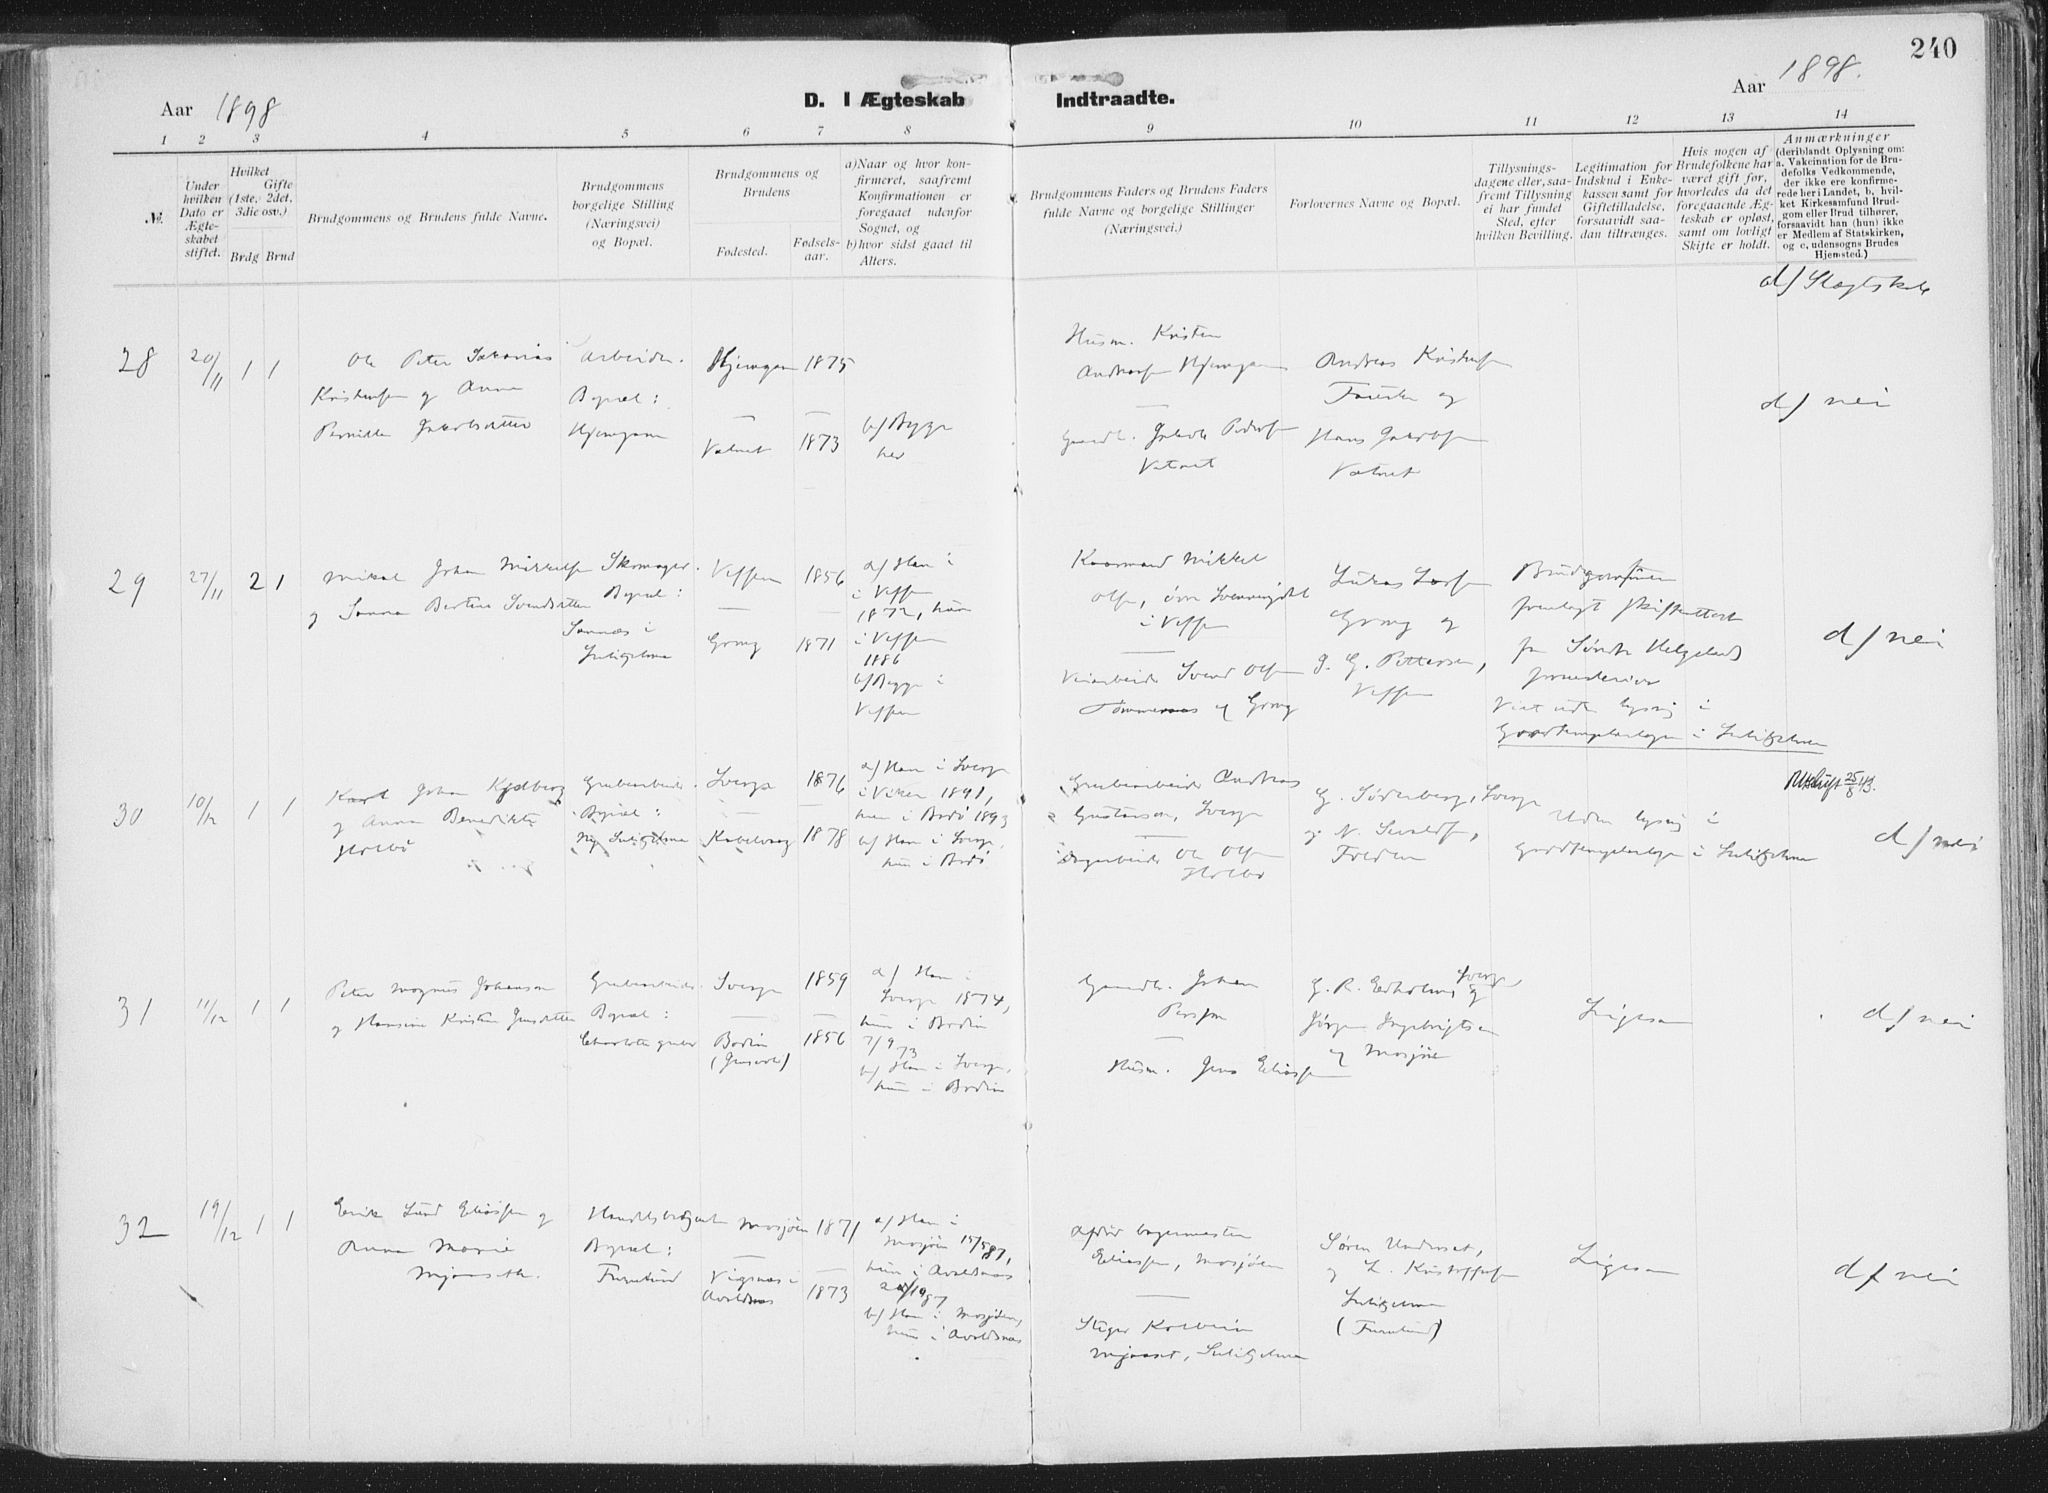 240
Aar 1898
D. I Ægteskab Indtraadte.
Aar 1898.
1 2 3 4 5 6 7 8 9 10 11 12 13 14
№.
Under
hvilken
Dato er
Ægte-
skabet
stiftet.
Hvilket
Gifte
(1ste, 2det,
3die osv.)
Brdg Brud
Brudgommens og Brudens fulde Navne.
Brudgommens
borgelige Stilling
(Næringsvei)
og Bopæl.
Brudgommens og
Brudens
Fødested.
Fødsels-
aar.
a) Naar og hvor kon-
firmeret, saafremt
Konfirmationen er
foregaaet udenfor
Sognet, og
b) hvor sidst gaaet til
Alters.
Brudgommens Faders og Brudens Faders
fulde Navne og borgelige Stillinger
(Næringsvei.)
Forlovernes Navne og Bopæl.
Tillysnings-
dagene eller, saa-
fremt Tillysning
ei har fundet
Sted, efter
hvilken Bevilling.
Legitimation for
Indskud i Enke-
kassen samt for
Giftetilladelse,
forsaavidt saa-
dan tiltrænges.
Hvis nogen af
Brudefolkene har
været gift før,
hvorledes da det
foregaaende Æg-
teskab er opløst,
samt om lovligt
Skifte er holdt.
Anmærkninger
(deriblandt Oplysning om:
a. Vakcination for de Bru-
defolks Vedkommende,
der ikke ere konfirme-
rede her i Landet, b. hvil-
ket Kirkesamfund Brud-
gom eller Brud tilhører,
forsaavidt han (hun) ikke
er Medlem af Statskirken,
og c. udensogns Brudes
Hjemsted.)
d/ Slægtskab
28 20/11 1 1
Ole Peter Zakarias
Kristensen og Anna
Pernille Jakobsdatter
Arbeider.
Bopæl:
Hjemgam
Hjemgam 1875
Vatnet 1873
b/ Begge
her
Husm. Kristen
Andreasen Hjemgam
Gaardb. Jakob Pedersen
Vatnet
Andreas Kristensen
Fauske og
Hans Jakobsen
Vatnet
d/ nei
29 27/11 2 1
Mikal Johan Mikkelsen
og Sanna Bertine Svendsdatter
Skomager.
Bopæl:
Sannæs i
Sulitjelma
Vefsen 1856
Grong 1871
a/ Han i
i Vefsen
1872, hun
i Vefsen
1886
b/ Begge i
Vefsen
Kaarmand Mikkel
Olsen, øvre Svenningdal
i Vefsen
Veiarbeider Svend Olsen
Tømmeraas og Grong
Lukas Larsen
Grong og
J. G. Pettersen,
Vefsen
Brudgommen
fremlagt skifteattest
fra Søndre Helgelands
sorenskriveri
Viet uden lysning i
Goodtemplarlogen i Sulitjelma
d/ nei
30 10/12 1 1
Karl Johan Kjelberg
og Anna Benedikte
Holbø
Grubearbeider.
Bopæl:
Ny Sulitjelma
Sverge 1876
Kabelvaag 1878
a/ Han i Sverge
i Viken 1891,
hun i Bodø 1893
b/ Han i Sverge,
hun i Bodø
Grubearbeider Andreas
Gustavson, Sverge
Dagarbeider Ole Olsen
Holbø
G. Söderberg, Sverge
og N. Sivaldsen,
Folden
Uden lysning i
Goodtemplarlogen i Sulitjelma
Utskrift 25/8 43.
d/ nei
31 11/12 1 1
Peter Magnus Johanson
og Hansine Kristine Jensdatter
Grubearbeider.
Bopæl:
Charlotte grube
Sverge 1859
Bodin 1856
a/ Han i
Sverge 1874,
hun i Bodin
7/9 73
b/ Han i Sverge,
hun i Bodin
Gaardb. Johan
Person
Husm. Jens Eliassen
G. R. Edholm, Sverge,
og
Jörgen Ingebrigtsen
og Mosjøen
Ligesaa
d/ nei
32 19/12 1 1
Erik Lund Eliassen og
Anna Marie
Mjaaseth.
Handelsbetjent
Bopæl:
Furulund
Mosjøen 1871
Vigsnæs i
Avaldsnæs 1873
a/ Han i
Mosjøen 15/5 87,
hun i Avaldsnæs
b/ Han i Mosjøen,
hun i Avaldsnæs
Afdød bagermester
Eliassen, Mosjøen
Stiger Kolbein
Mjaaset, Sulitjelma
Søren Underset,
og L. Kristoffersen
Sulitjelma
(Furulund)
Ligesaa
d/ nei